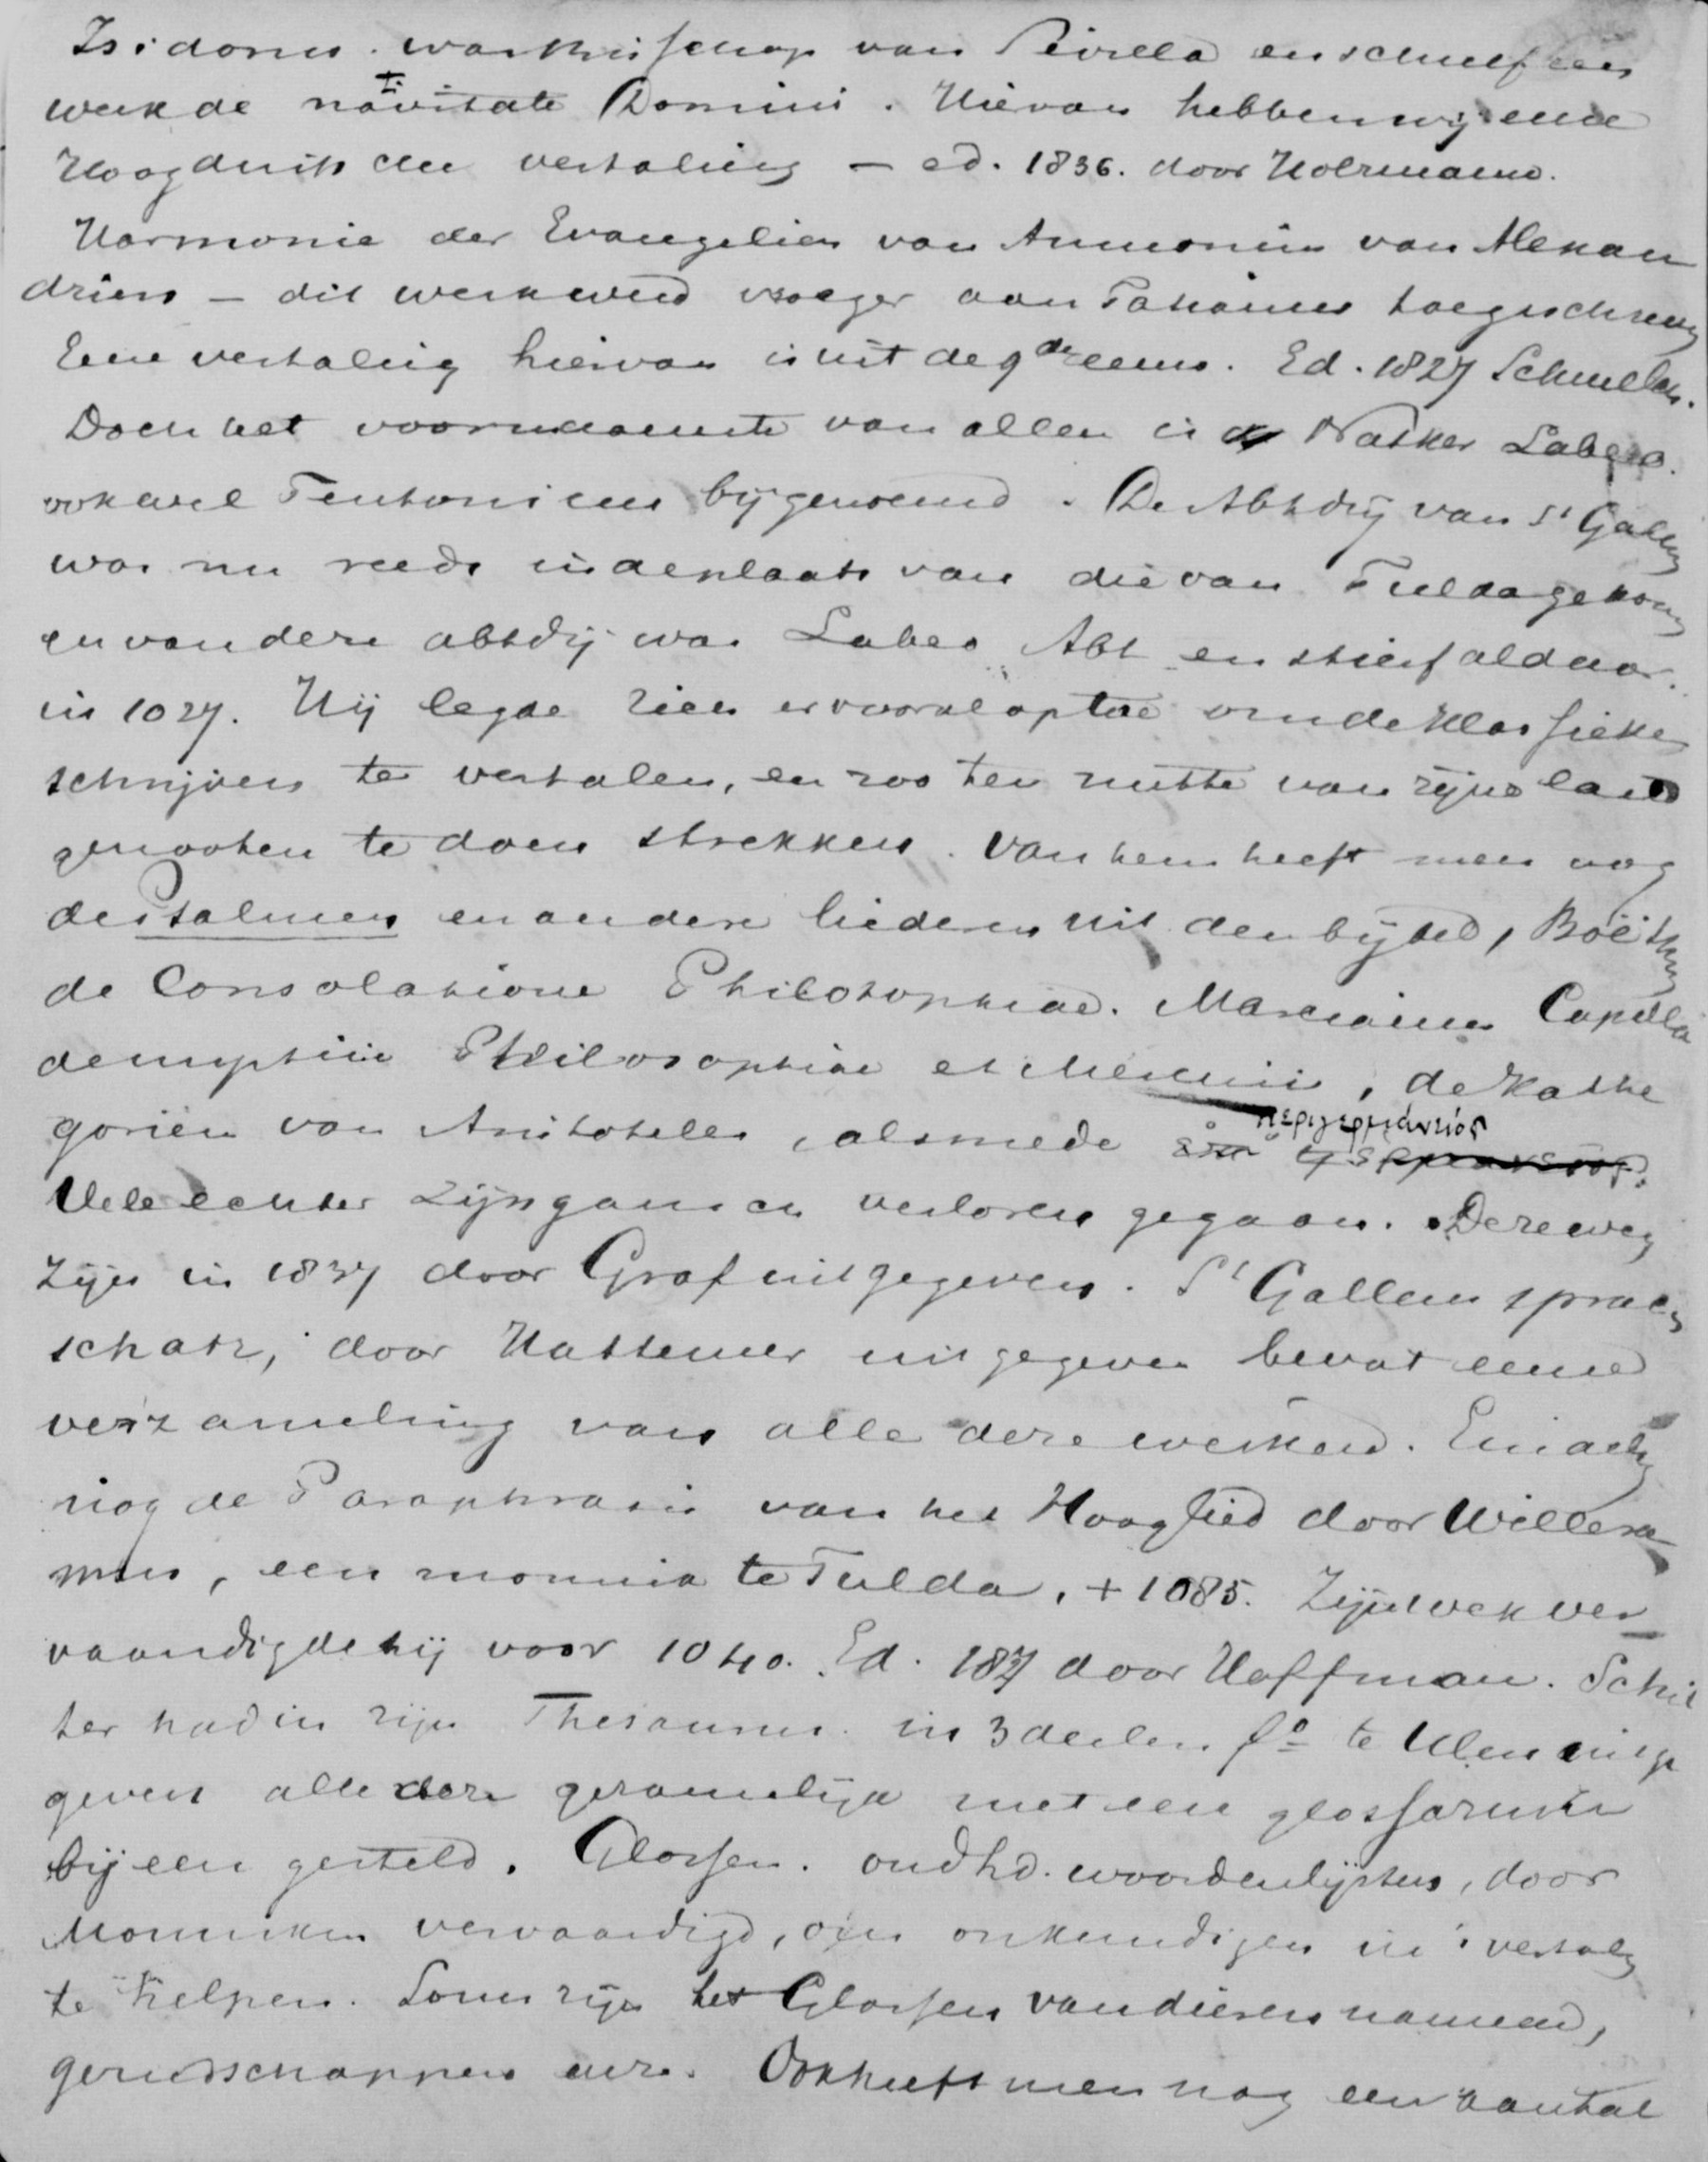 Isidorus. was bisschop van Sevilla en schreef een
werk de nativitate Domini. Hiervan hebben wij eene
Hoogduitsche vertaling – ed. 1836. door Holzmann.
Harmonie der Evangelien van Ammonius van Alexan
driens – dit werk werd vroeger aan Tatianus toegeschreven
Eene vertaling hiervan is uit de 9de eeuw. Ed. 1827 Schmeller.
Doch het voornaamste van allen is Notker Labeo.
ook wel Teutonicus bijgenoemd. De Abtdij van St Gallen
was nu reeds in de plaats van die van Fulda gekomen
en van deze abtdij was Labeo Abt en stierf aldaar.
in 1027. Hij legde zich er vooral op toe om de klassieke
schrijvers te vertalen, en zoo ten nutte van zijne land
genooten te doen strekken. Van hem heeft men nog
de Psalmen en andere liederen uit den bijbel, Boëthius
de Consolatione Philosophiae. Marcianus Capella
de nuptiis Philosophiae et Mercurii, de Kathe
goriën van Aristoteles, alsmede
Vele echter zijn gansch verloren gegaan. Deze werken
zijn in 1837 door Graf uitgegeven. St Gallens sprach
schatz, door Hattemer uitgegeven bevat eene
verzameling van alle deze werken. Eindelijk
nog de Paraphrasis van het Hooglied door Willera
mus, een monnik te Fulda, + 1085. Zijn werk ver
vaardigde hij voor 1040. Ed. 1827 door Hoffman. Schil
ter had in zijn Thesaurus in 3 deelen fo te Ulm uitge
geven alle deze gezamelijk met een glossarium
bij een gesteld. Glossen. oudhd. woordenlijsten, door
Monniken vervaardigd, om onkundigen in 't vertalen
te helpen. Soms zijn het Glossen van dieren namen,
gereedschappen enz. Ook heeft men nog een aantal